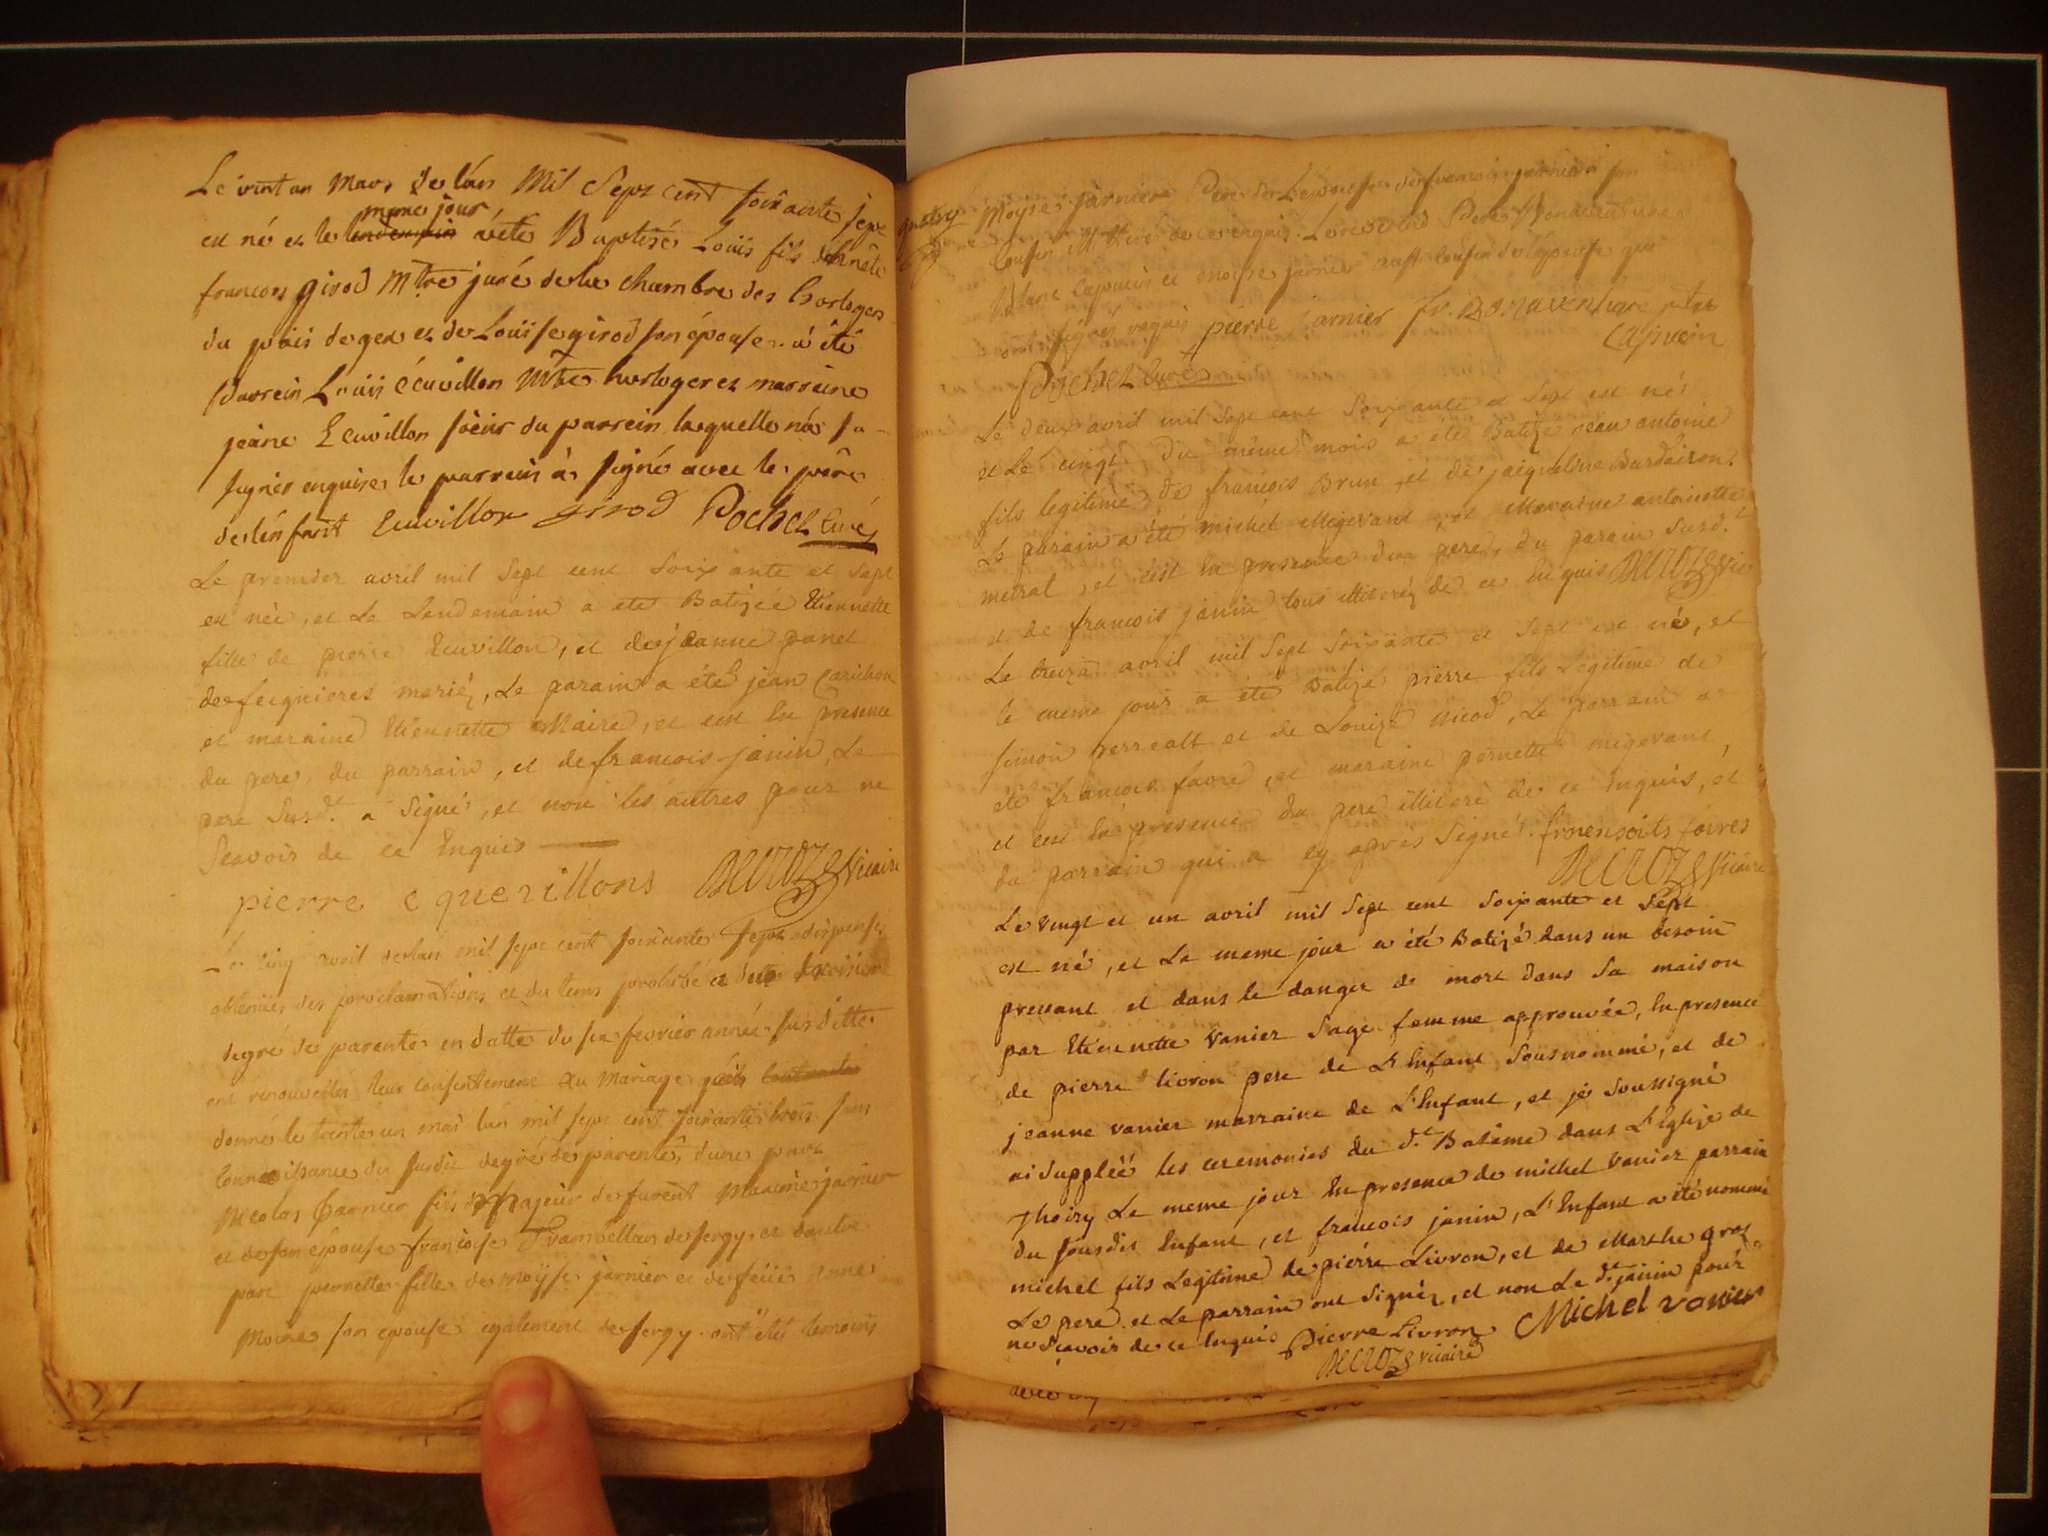 Le vint un Mars de lan Mil Sept cent soixante sept
même jour
est né et le lendemain a été Baptisé Louis fils d'hnête
francois girod Mtre juré de la chambre des horlogers
du païs de gex et de Louïse girod son épouse a été
parrein Louis Ecuvillon Mtre horloger et marreine
jeane Ecuvillon soeur du parrein laquelle n'a su
signer enquise le parrein a signé avec le père
de lenfant Ecuvillon girod Pochet Curé
Le premier avril mil Sept cent Soixante et Sept
est née, et Le Lendemain a été Batizée Etiennette
fille de pierre Ecuvillon, et de jeanne panet
de feignieres mariéz, Le parain a été jean Carichon
et maraine Etiennette Maire, et cest En presence
du pere, du parrain, et de francois janin, Le
pere Susdt. a Signé, et non les autres pour ne
Scavoir de ce Enquis
pierre equevillons DECROZE Vicaire
Le cinq avril de lan mil sept cent soixante sept dispenses
obtenües des proclamations et du tems prohibé et du troisieme
degré de parenté en datte du six fevrier année susditte
ont renouvellés leur consentement au Mariage qu'ils contracté
donné le trente un mai lan mil sept cent soixante trois sans
connoissance du susdit degré de parenté, d'une part
Nicolas Garnier fils Majeur de furent Maurice jarnier
et de son epouse francoise Tramellan de sergy et dautre
part pernette fille de Moÿse jarnier et de feüe Anne
Moine son epouse egalement de sergy ont étés temoins
Moyse jarnier Pere de Lepouse jarnier son
cousin de ce enquis. Le reverend Pere Bonaventure
Blanc capucin et moise jarnier aussi cousin de lepouse qui
signés requis pierre jarnier fr. Bonaventure ptre
Capucin
Pochet Curé
Le deux avril mil Sept cent Soixante et Sept est né
et Le cinq du même mois a été Batizé jean antoine
fils legitime de francois Brun et de jaiqueline Burdairon.
Le parain a été michel Megevant, et Maraine antoinette
metral, et cest En presence du pere, du parain Susdt.
et de francois janin tous illiteréz de ce Enquis DECROZE vic
Le treize avril mil Sept Soixante et Sept est né, et
le meme jour a été Batizé pierre fils Legitime de
simon perrealt et de Louize nicod, Le parrain a
été francois favre, et maraine pernette megevant,
et cest En presence du pere illiteré de ce Enquis, et
du parrain qui a cy apres Signé. fronensoits favres
DECROZE Vicaire
Le vingt et un avril mil Sept cent Soixante et Sept
est né, et Le meme jour a été Batizé dans un besoin
pressant et dans le danger de mort dans Sa maison
par Etiennette Vanier Sage femme approuvée, En presence
de pierre Livron pere de L'Enfant Sousnommé, et de
jeanne vanier marraine de L'Enfant, et je Soussigné
ai Suppléé les ceremonies du dt. Batême dans L'Eglize de
Thoiry Le meme jour En presence de michel Vanier parrain
du sousdit Enfant, et francois janin, L'Enfant a été nommé
michel fils Legitime de pierre Livron, et de Marthe groz.
Le pere et Le parrain ont Signéz, et non Le dt. janin pour
ne Scavoir de ce Enquis Pierre Livron Michel vanier
DECROZE vicaire